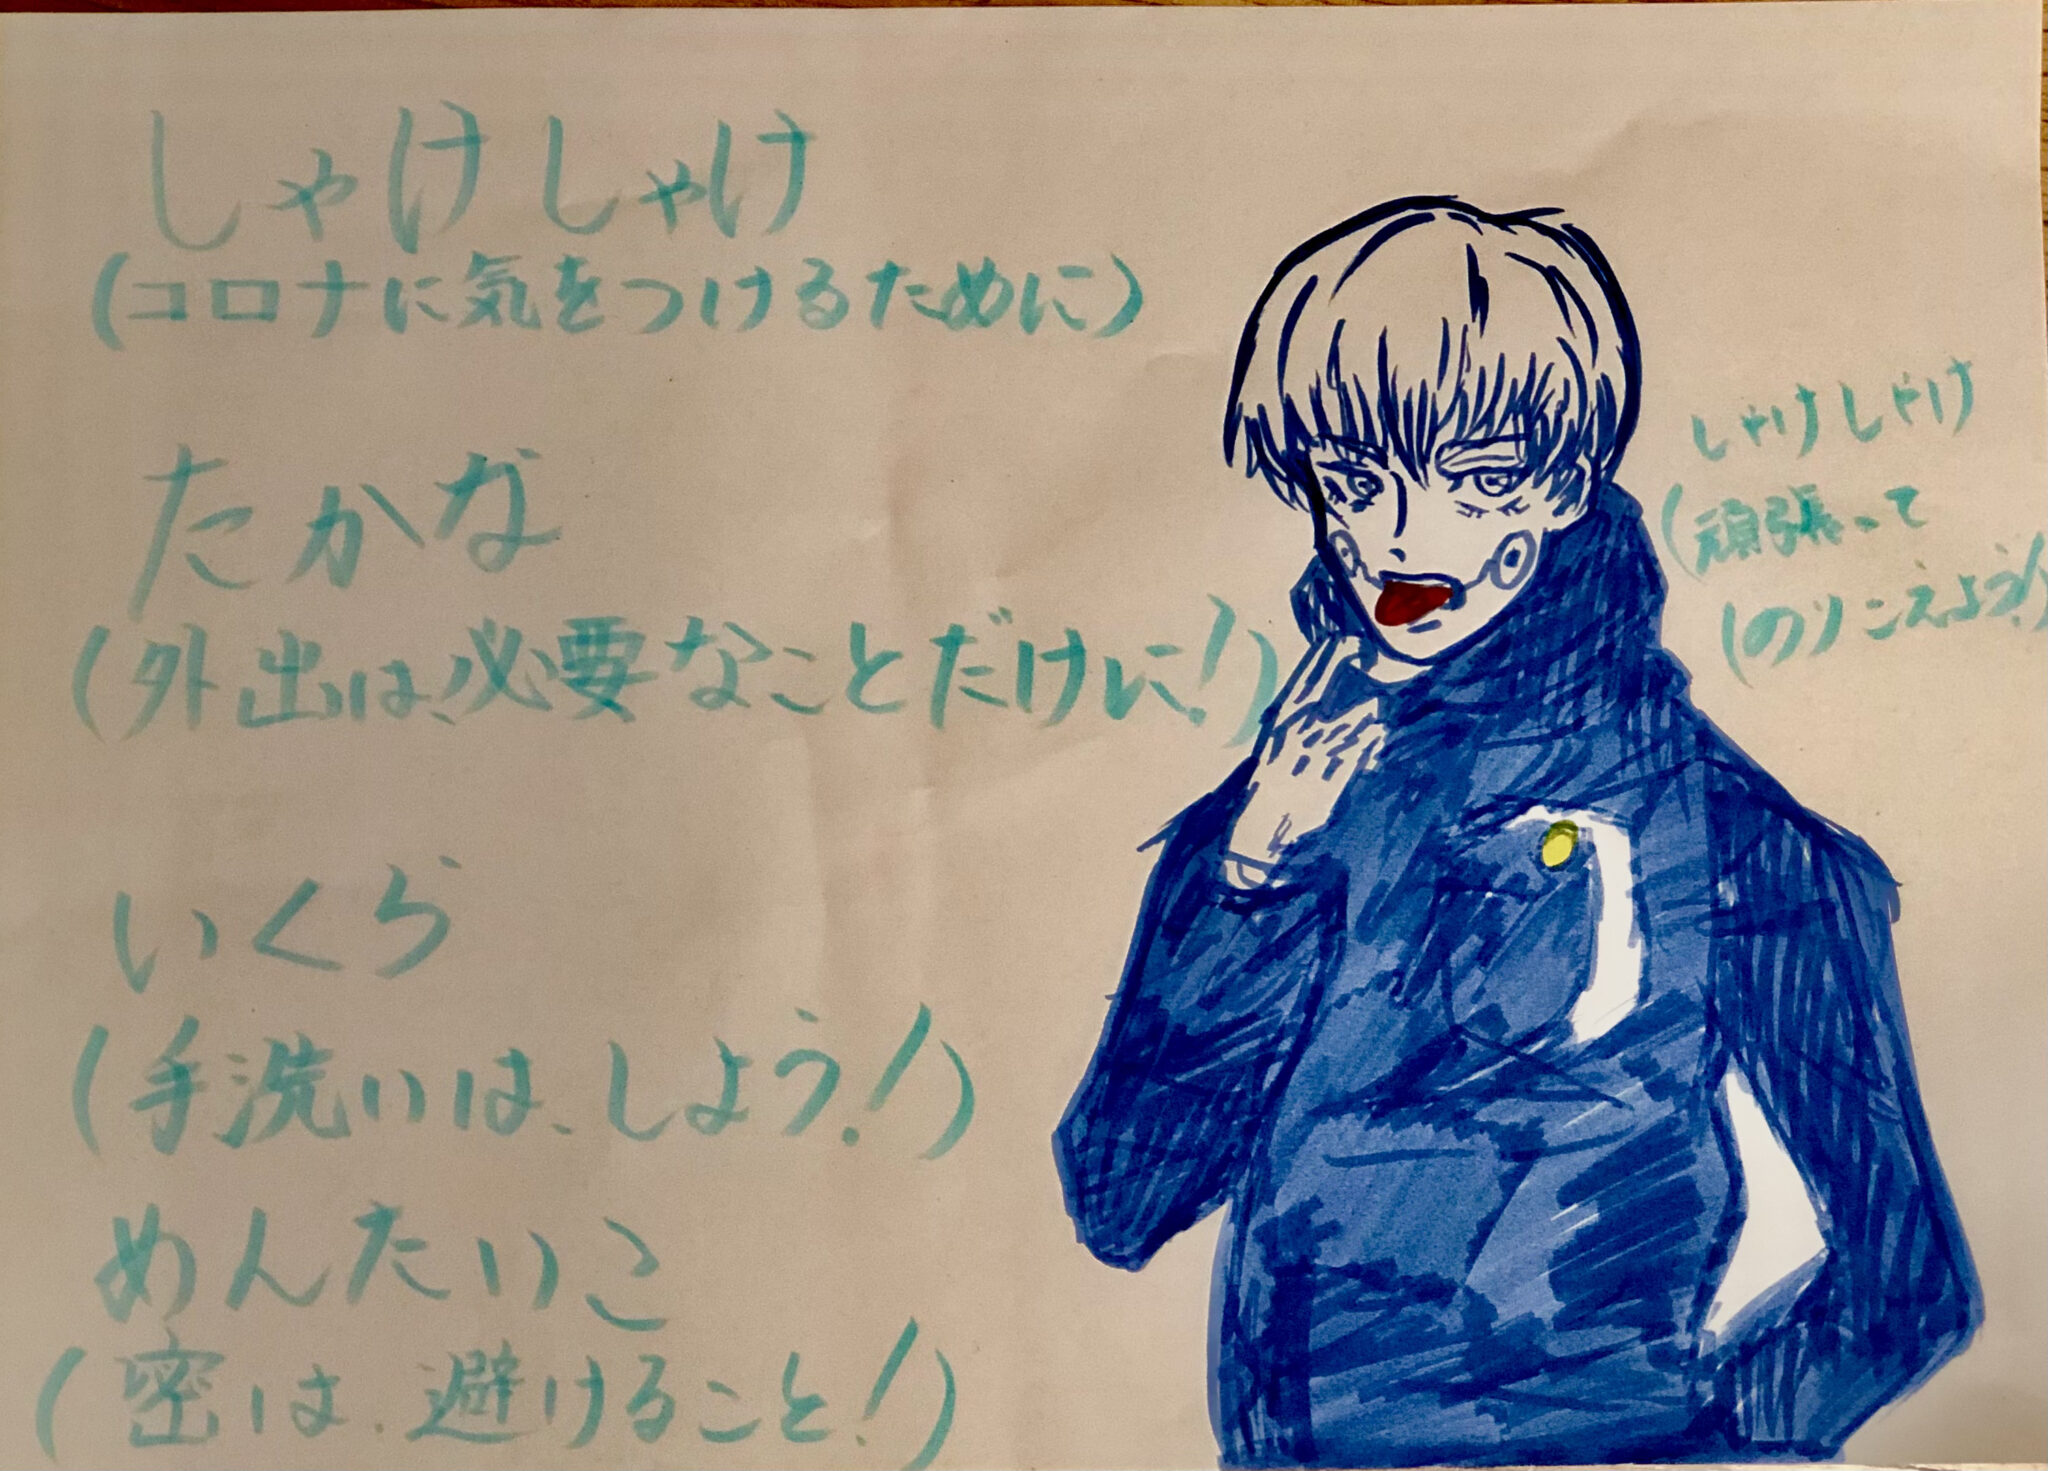 しゃけしゃけ
(コロナに気をつけるために)
たかな
(外出は、必要なことだけに!)
いくら
(手洗いは、しよう!)
めんたいこ
(密は、避けること!)
しゃけしゃけ
(頑張って
(のりこえよう!)